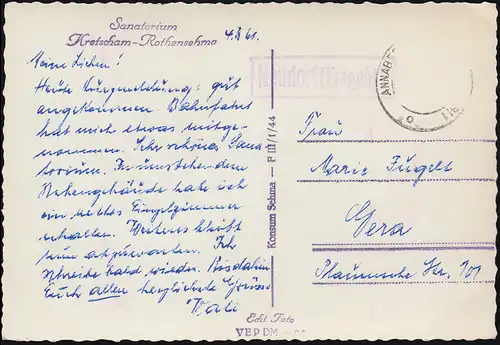 Sanatorium
Kretscham-Rothensehma
4.3.61.
Meine Lieben!
Heute Kurzmeldung: gut
angekommen. Bahnfahrt
hat mich etwas mitge-
nommen. Sehr schönes Sana-
torium. Im
Nebengebäude habe ich
ein nettes Einzelzimmer
erhalten. Weiteres bleibt
nun abzuwarten. Ich
schreibe bald wieder. Bis dahin
Euch allen herzliche Grüsse
Konsum Sehma — F III/1/44
Echt Foto
VEB DM
Neudorf (Erzgeb
ANNAB
Frau
Marie Fugelt
Gera
Plauensche Str. 101